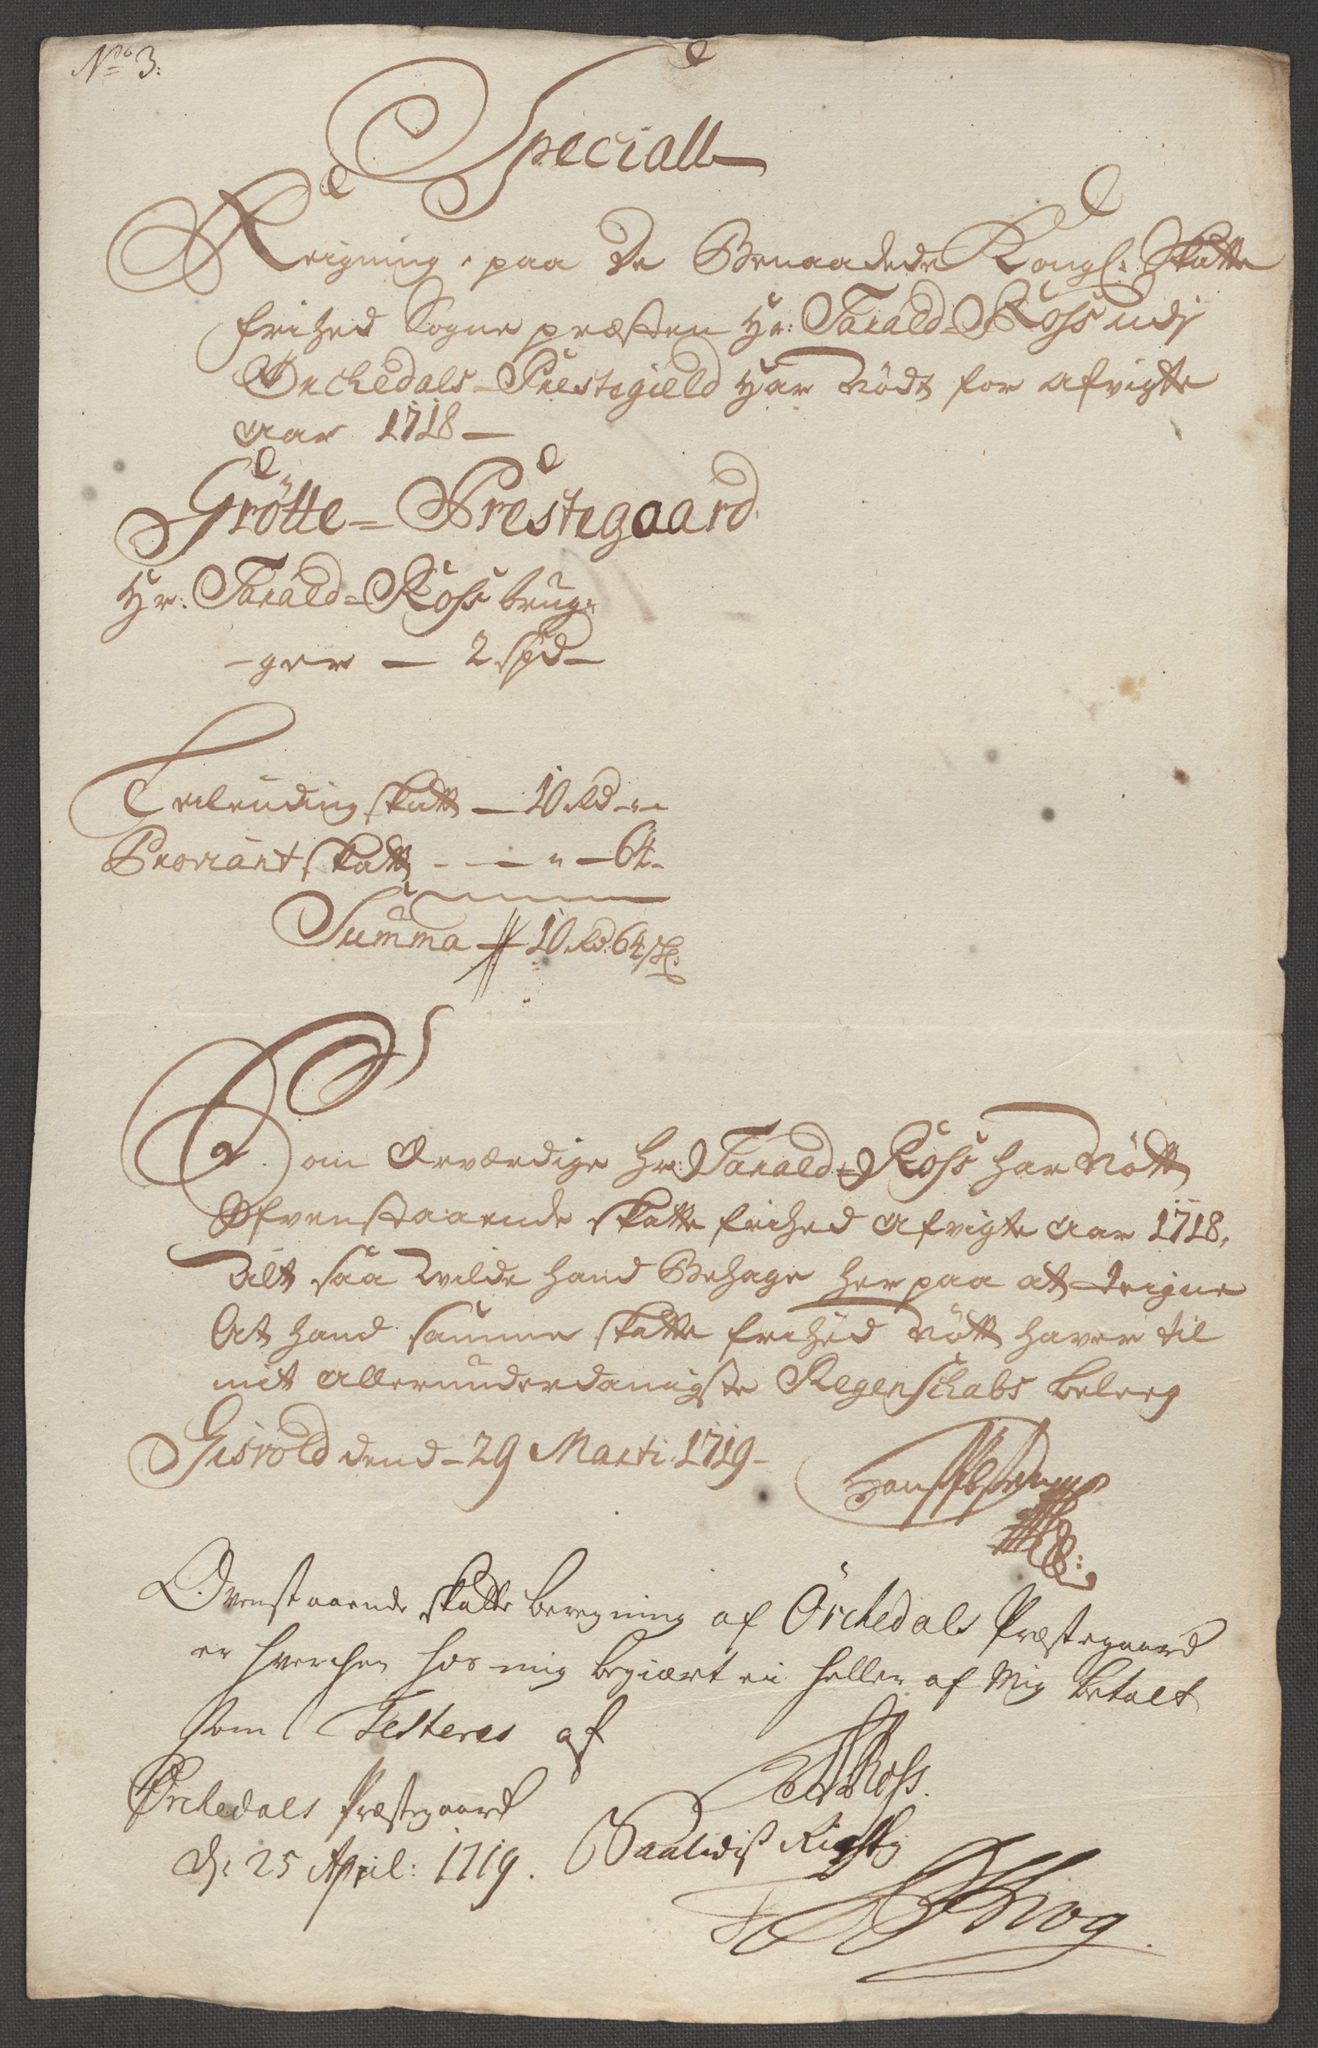 No 3:
Speciall
Reigning paa De Benaadede Kongl: Skatte
frihed Sogne præsten Hr: Tarald Ross udj
Örchedals Prestegield Har Nödt for afvigte
aar 1718
Grötte Prestegaard
Hr: Tarald Ross brug-
-ger — 2 spd
skatt — 10 Rd - "
Proviant skatt - — " — 64
Summa — 10 Rd: 64 sk:
Som Ærværdige Hr: Tarald Ross har Nött
Ofvenstaaende skatte frihed afvigte aar 1718,
Alt saa Wilde hand Behage her paa at teigne
At hand samme skatte frihed Nött haver til
mit allerunderdanigste Regenschabs beleeg
Gisvold dend 29 Marti 1719
Ovenstaaende skatte beregning af Örchedals Præstegaard
er hverchen hos mig begiært ei heller af Mig betalt
som Testeres af
Örchedals Præstegaard
d: 25 April: 1719.
TRoss.
Saaledis Rigtig